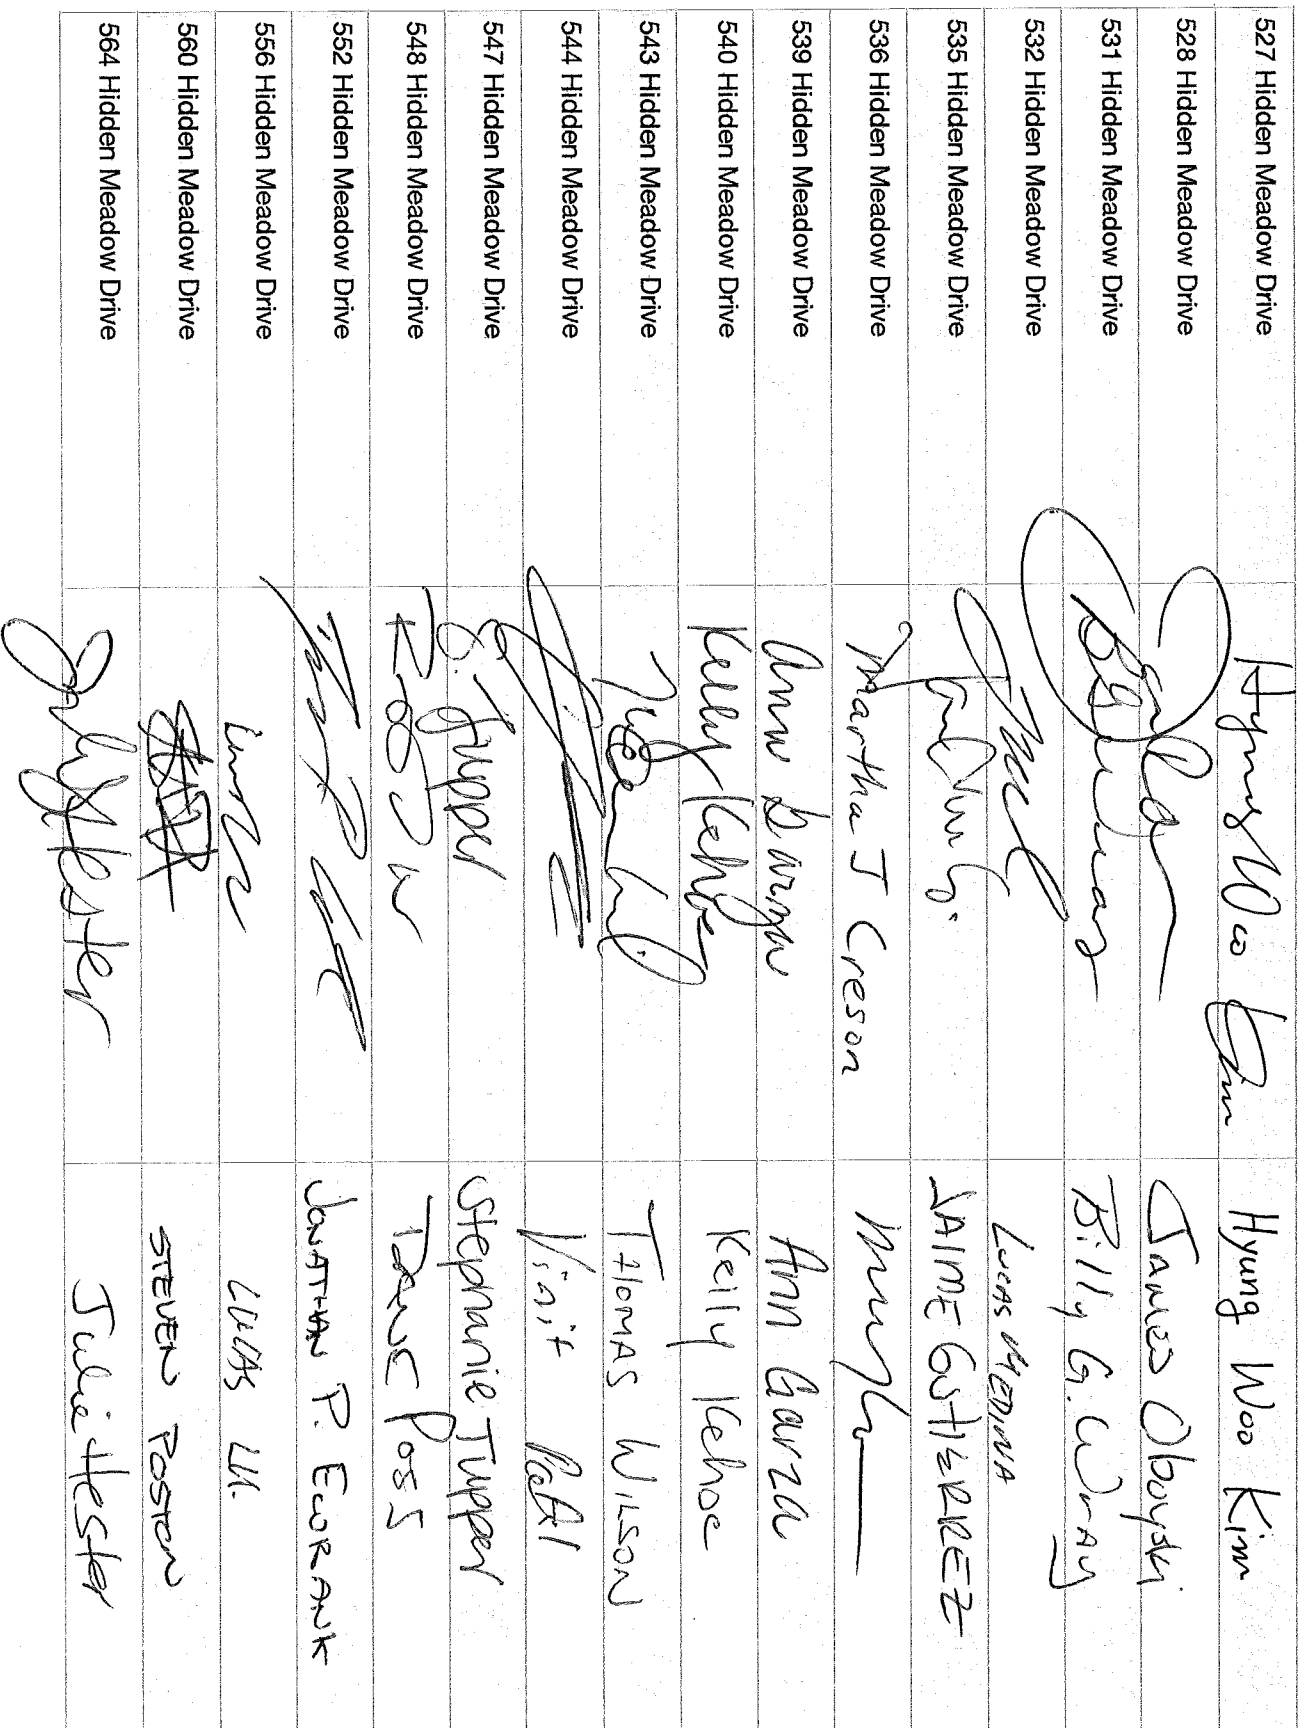 527 Hidden Meadow Drive Hyung Woo Kim Hyung Woo Kim
528 Hidden Meadow Drive James Oboyski
531 Hidden Meadow Drive Billy G. Wray
532 Hidden Meadow Drive LUCAS MEDINA
535 Hidden Meadow Drive JAIME GUTIERREZ
536 Hidden Meadow Drive Martha J Creson
539 Hidden Meadow Drive Ann Garza Ann Garza
540 Hidden Meadow Drive Kelly Kehoe Kelly Kehoe
543 Hidden Meadow Drive THOMAS WILSON
544 Hidden Meadow Drive Vinit Patel
547 Hidden Meadow Drive S. Tupper Stephanie Tupper
548 Hidden Meadow Drive Poss
552 Hidden Meadow Drive JONATHAN P. EWBANK
556 Hidden Meadow Drive LUCAS
560 Hidden Meadow Drive STEVEN POSTON
564 Hidden Meadow Drive Julie Hester Julie Hester